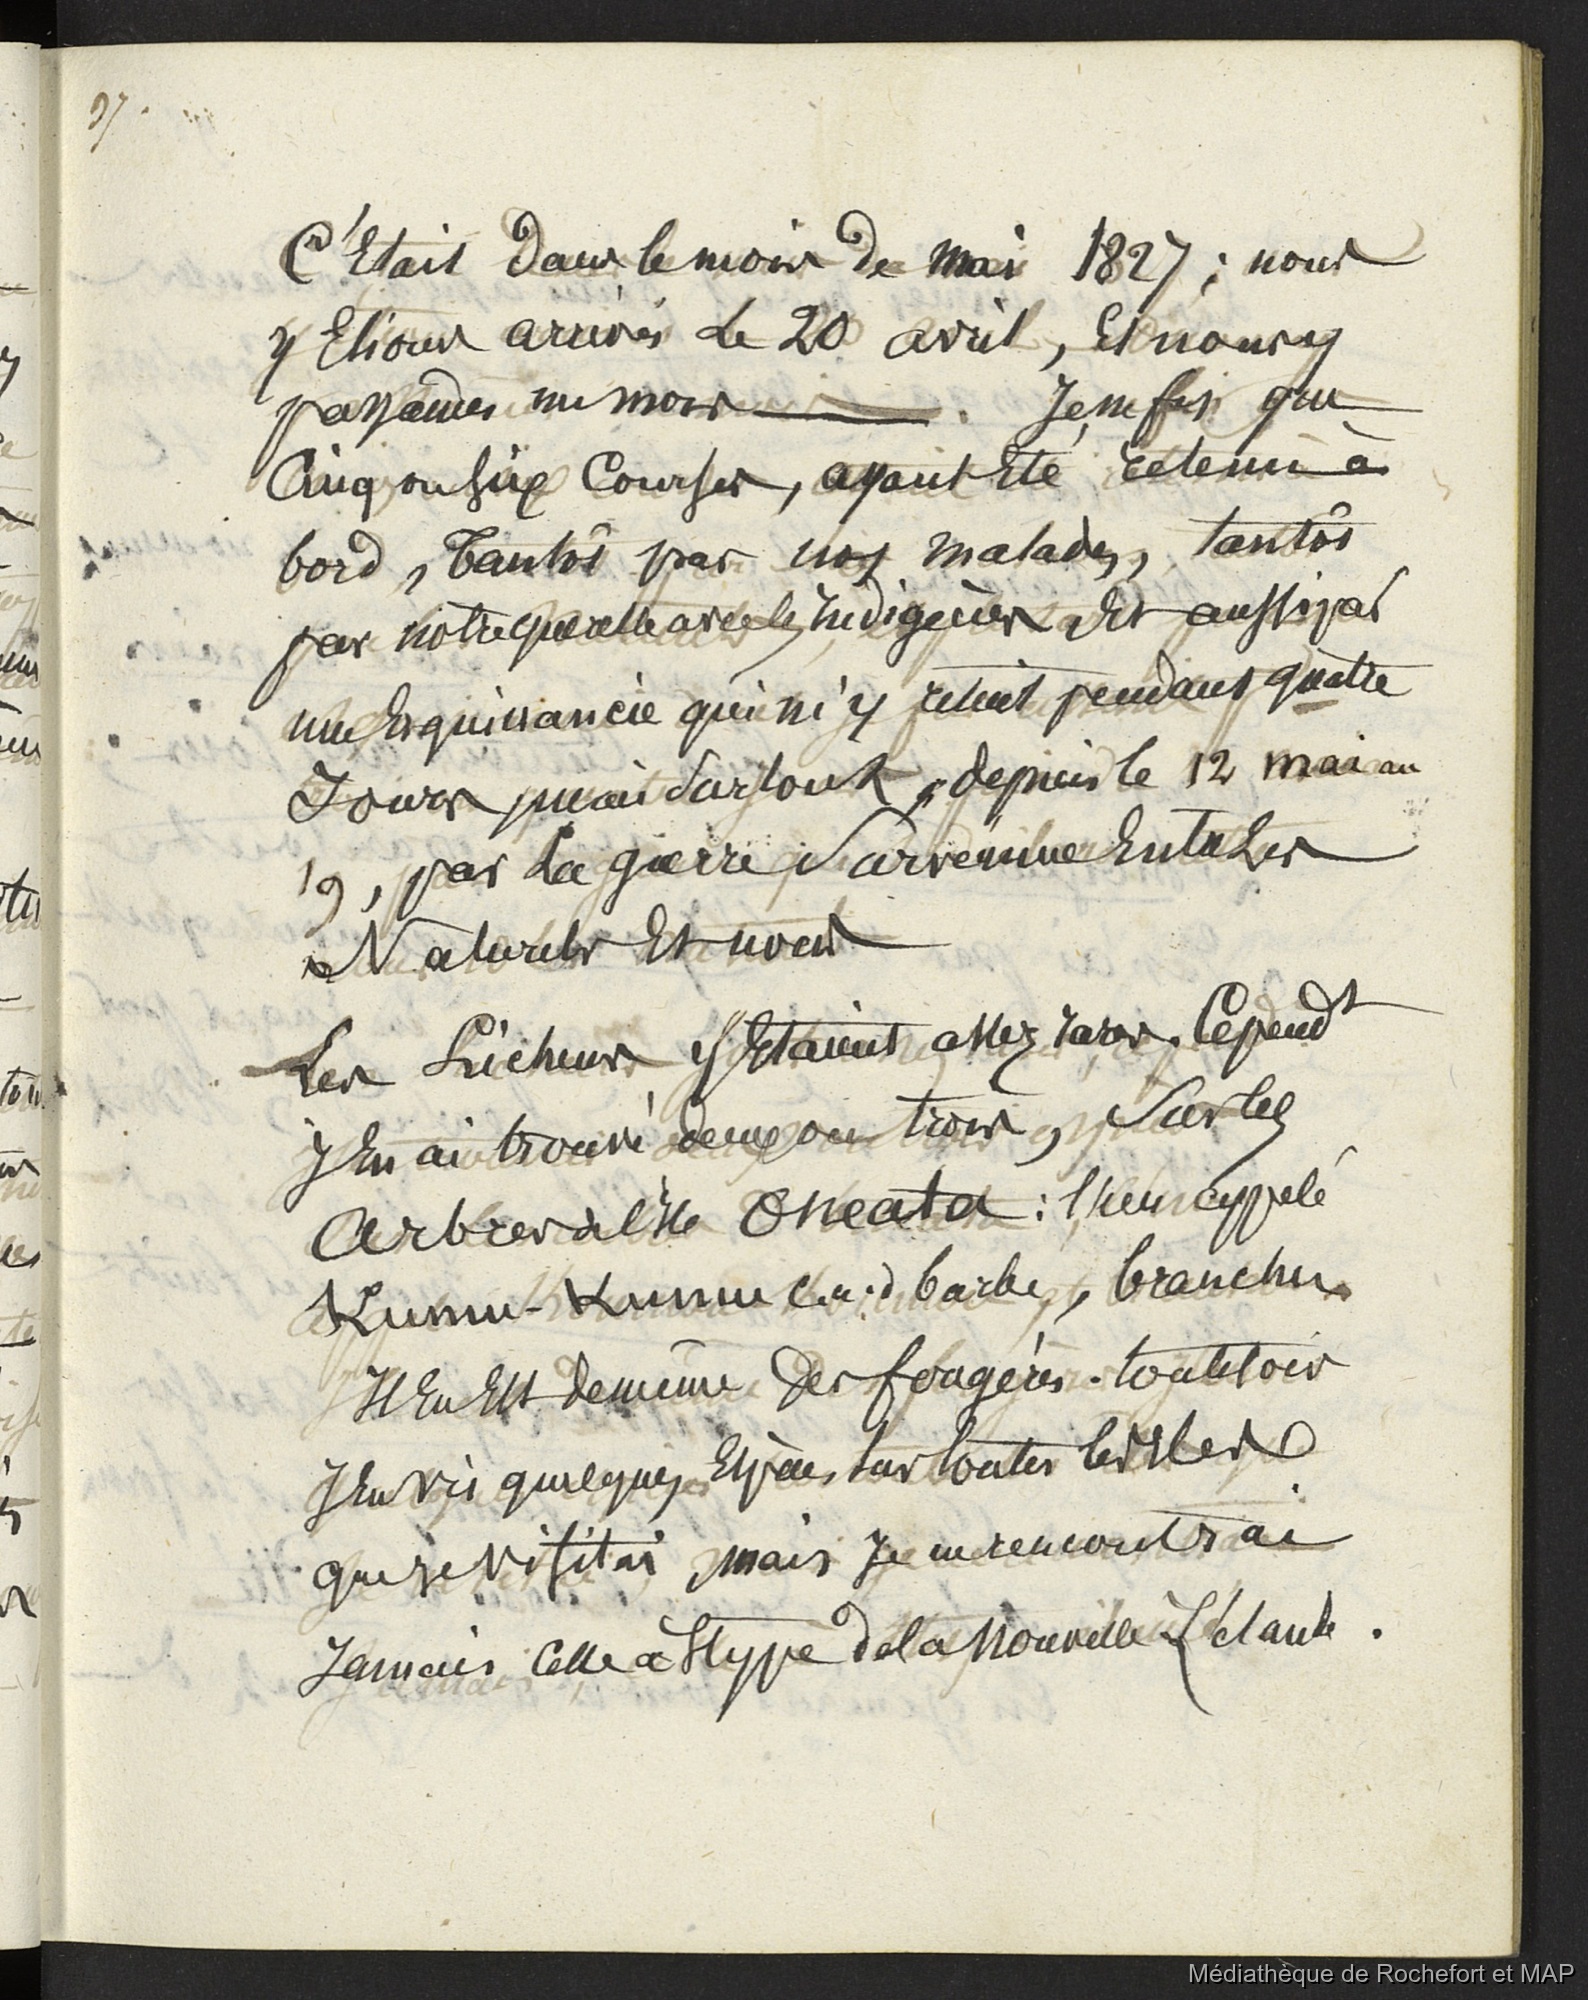 97.
C'Etait dans le mois de mai 1827; nous
y Etions arrivés Le 20 avril, Et nous y
passames un mois. Je ne fis que
Cinq ou Six Courses, ayant Eté retenu à
bord, tantôt par nos malades, tantôt
par notre querelle avec les indigènes Et aussi par
une Esquinancie qui m'y retint pendant quatre
Jours mais Surtout, depuis le 12 mai au
19, par La guerre Survenue Entre Les
Naturels Et nous
Les Lichens y Etaient assez rares. Cependt
J'En ai trouvé deux ou trois, Sur les
Arbres à l'ile Oneata: l'un appelé
Kumu-Kumu barbe, branchu
Il En Est de même des fougères. toutefois
J'En vis quelques Espèces sur toutes les Iles
que je visitai, mais Je ne rencontrai
Jamais Celle à Stype de la Nouvelle Zélande.
Médiathèque de Rochefort et MAP